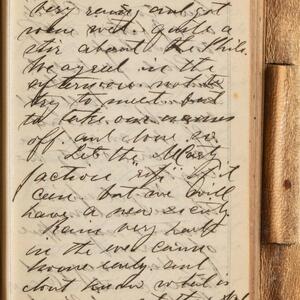 very rainy and got
some wet. quite a
stir about the Phila.
We agreed in the
afternoon not to
try to meet but
to take our names
off and done so
Let the Mart
faction "rip" if it
can but we will
have a new society
Rains very hard
in the eve came
home early and
dont know what is